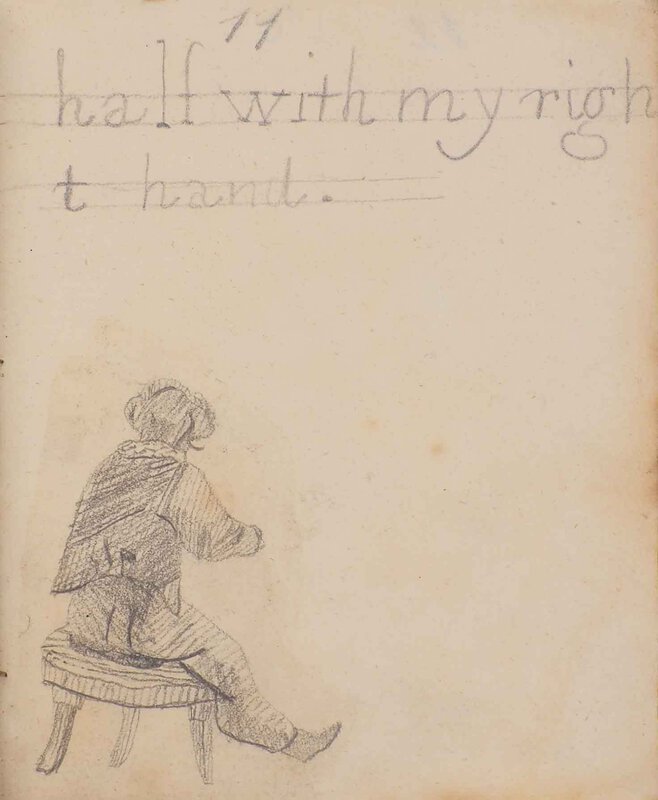 11
half with my righ
t hand.